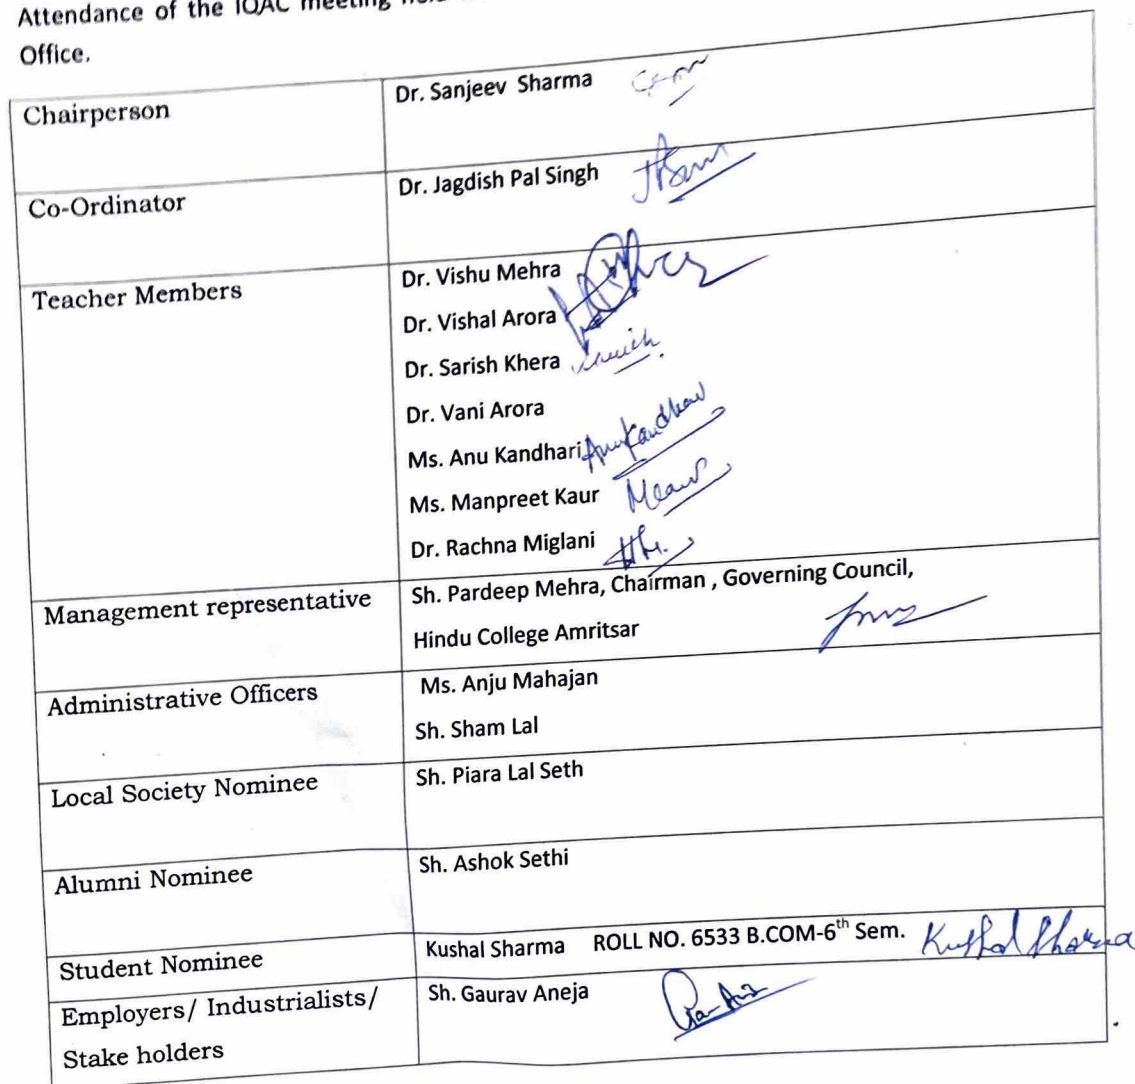 Attendance of the IQAC meeting
Office.
Chairperson
Dr. Sanjeev Sharma
Co-Ordinator
Dr. Jagdish Pal Singh
Teacher Members
Dr. Vishu Mehra
Dr. Vishal Arora
Dr. Sarish Khera
Dr. Vani Arora
Ms. Anu Kandhari
Ms. Manpreet Kaur
Dr. Rachna Miglani
Management representative
Sh. Pardeep Mehra, Chairman , Governing Council,
Hindu College Amritsar
Administrative Officers
Ms. Anju Mahajan
Sh. Sham Lal
Local Society Nominee
Sh. Piara Lal Seth
Alumni Nominee
Sh. Ashok Sethi
Student Nominee
Kushal Sharma ROLL NO. 6533 B.COM-6th Sem. Kushal Sharma
Employers/ Industrialists/
Stake holders
Sh. Gaurav Aneja